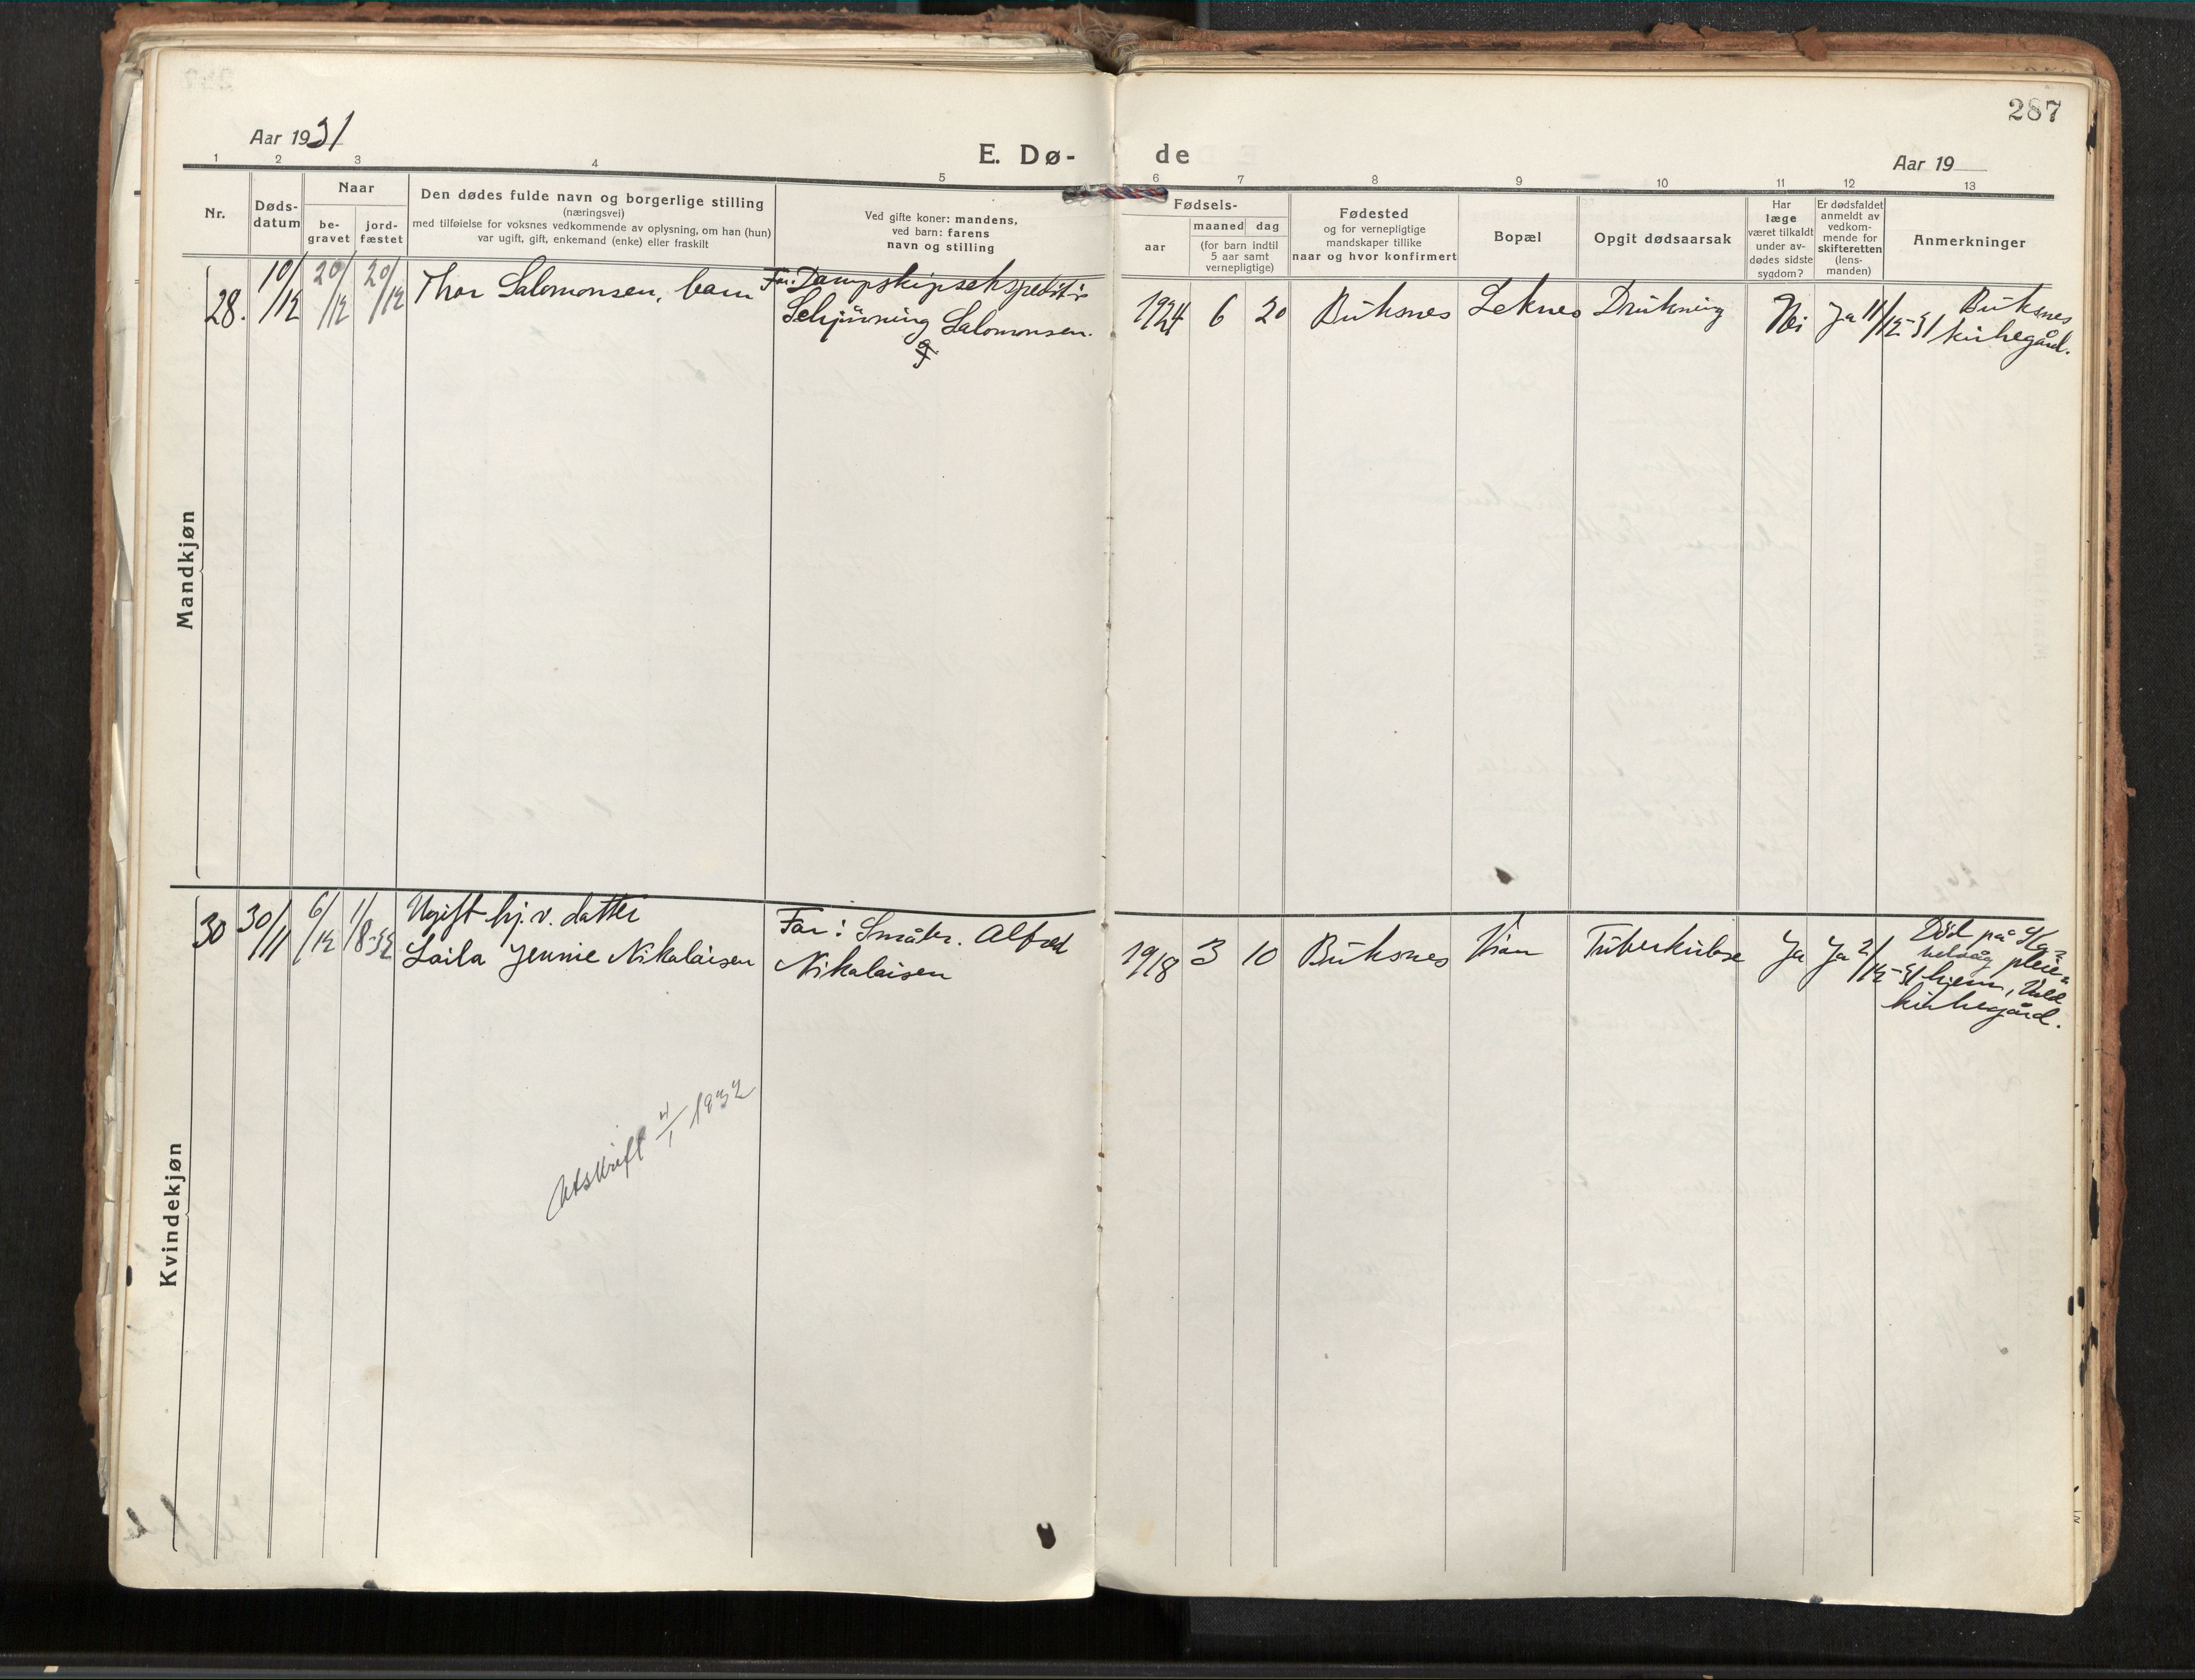 287
Aar 1931
E. Dø-
de
Aar 19
1 2 3 4 5 6 7 8 9 10 11 12 13
Nr.
Døds-
datum
Naar
be-
gravet
jord-
fæstet
Den dødes fulde navn og borgerlige stilling
(næringsvei)
med tilføielse for voksnes vedkommende av oplysning, om han (hun)
var ugift, gift, enkemand (enke) eller fraskilt
Ved gifte koner: mandens,
ved barn: farens
navn og stilling
Fødsels-
aar
maaned dag
(for barn indtil
5 aar samt
vernepligtige)
Fødested
og for vernepligtige
mandskaper tillike
naar og hvor konfirmert
Bopæl
Opgit dødsaarsak
Har
læge
været tilkaldt
under av-
dødes sidste
sygdom?
Er dødsfaldet
anmeldt av
vedkom-
mende for
skifteretten
(lens-
manden)
Anmerkninger
Mandkjøn
28. 10/12 20/12 20/12 Thor Salomonsen, barn
Far: Dampskipsekspeditør
Schjürning Salomonsen.
1924 6 20 Buksnes Leknes Drukning Nei Ja 11/12-31
Buksnes
kirkegård.
Kvindekjøn
30 30/11 6/12 1/8-32 Ugift hj. v. datter
Laila Jennie Nikolaisen
Far: Småbr. Alfred
Nikolaisen
1918 3 10 Buksnes Tuberkulose Ja Ja 2/12-31
Død på Ka=
belvåg pleie=
hjem,
kirkegård.
Utskrift 4/1 1932